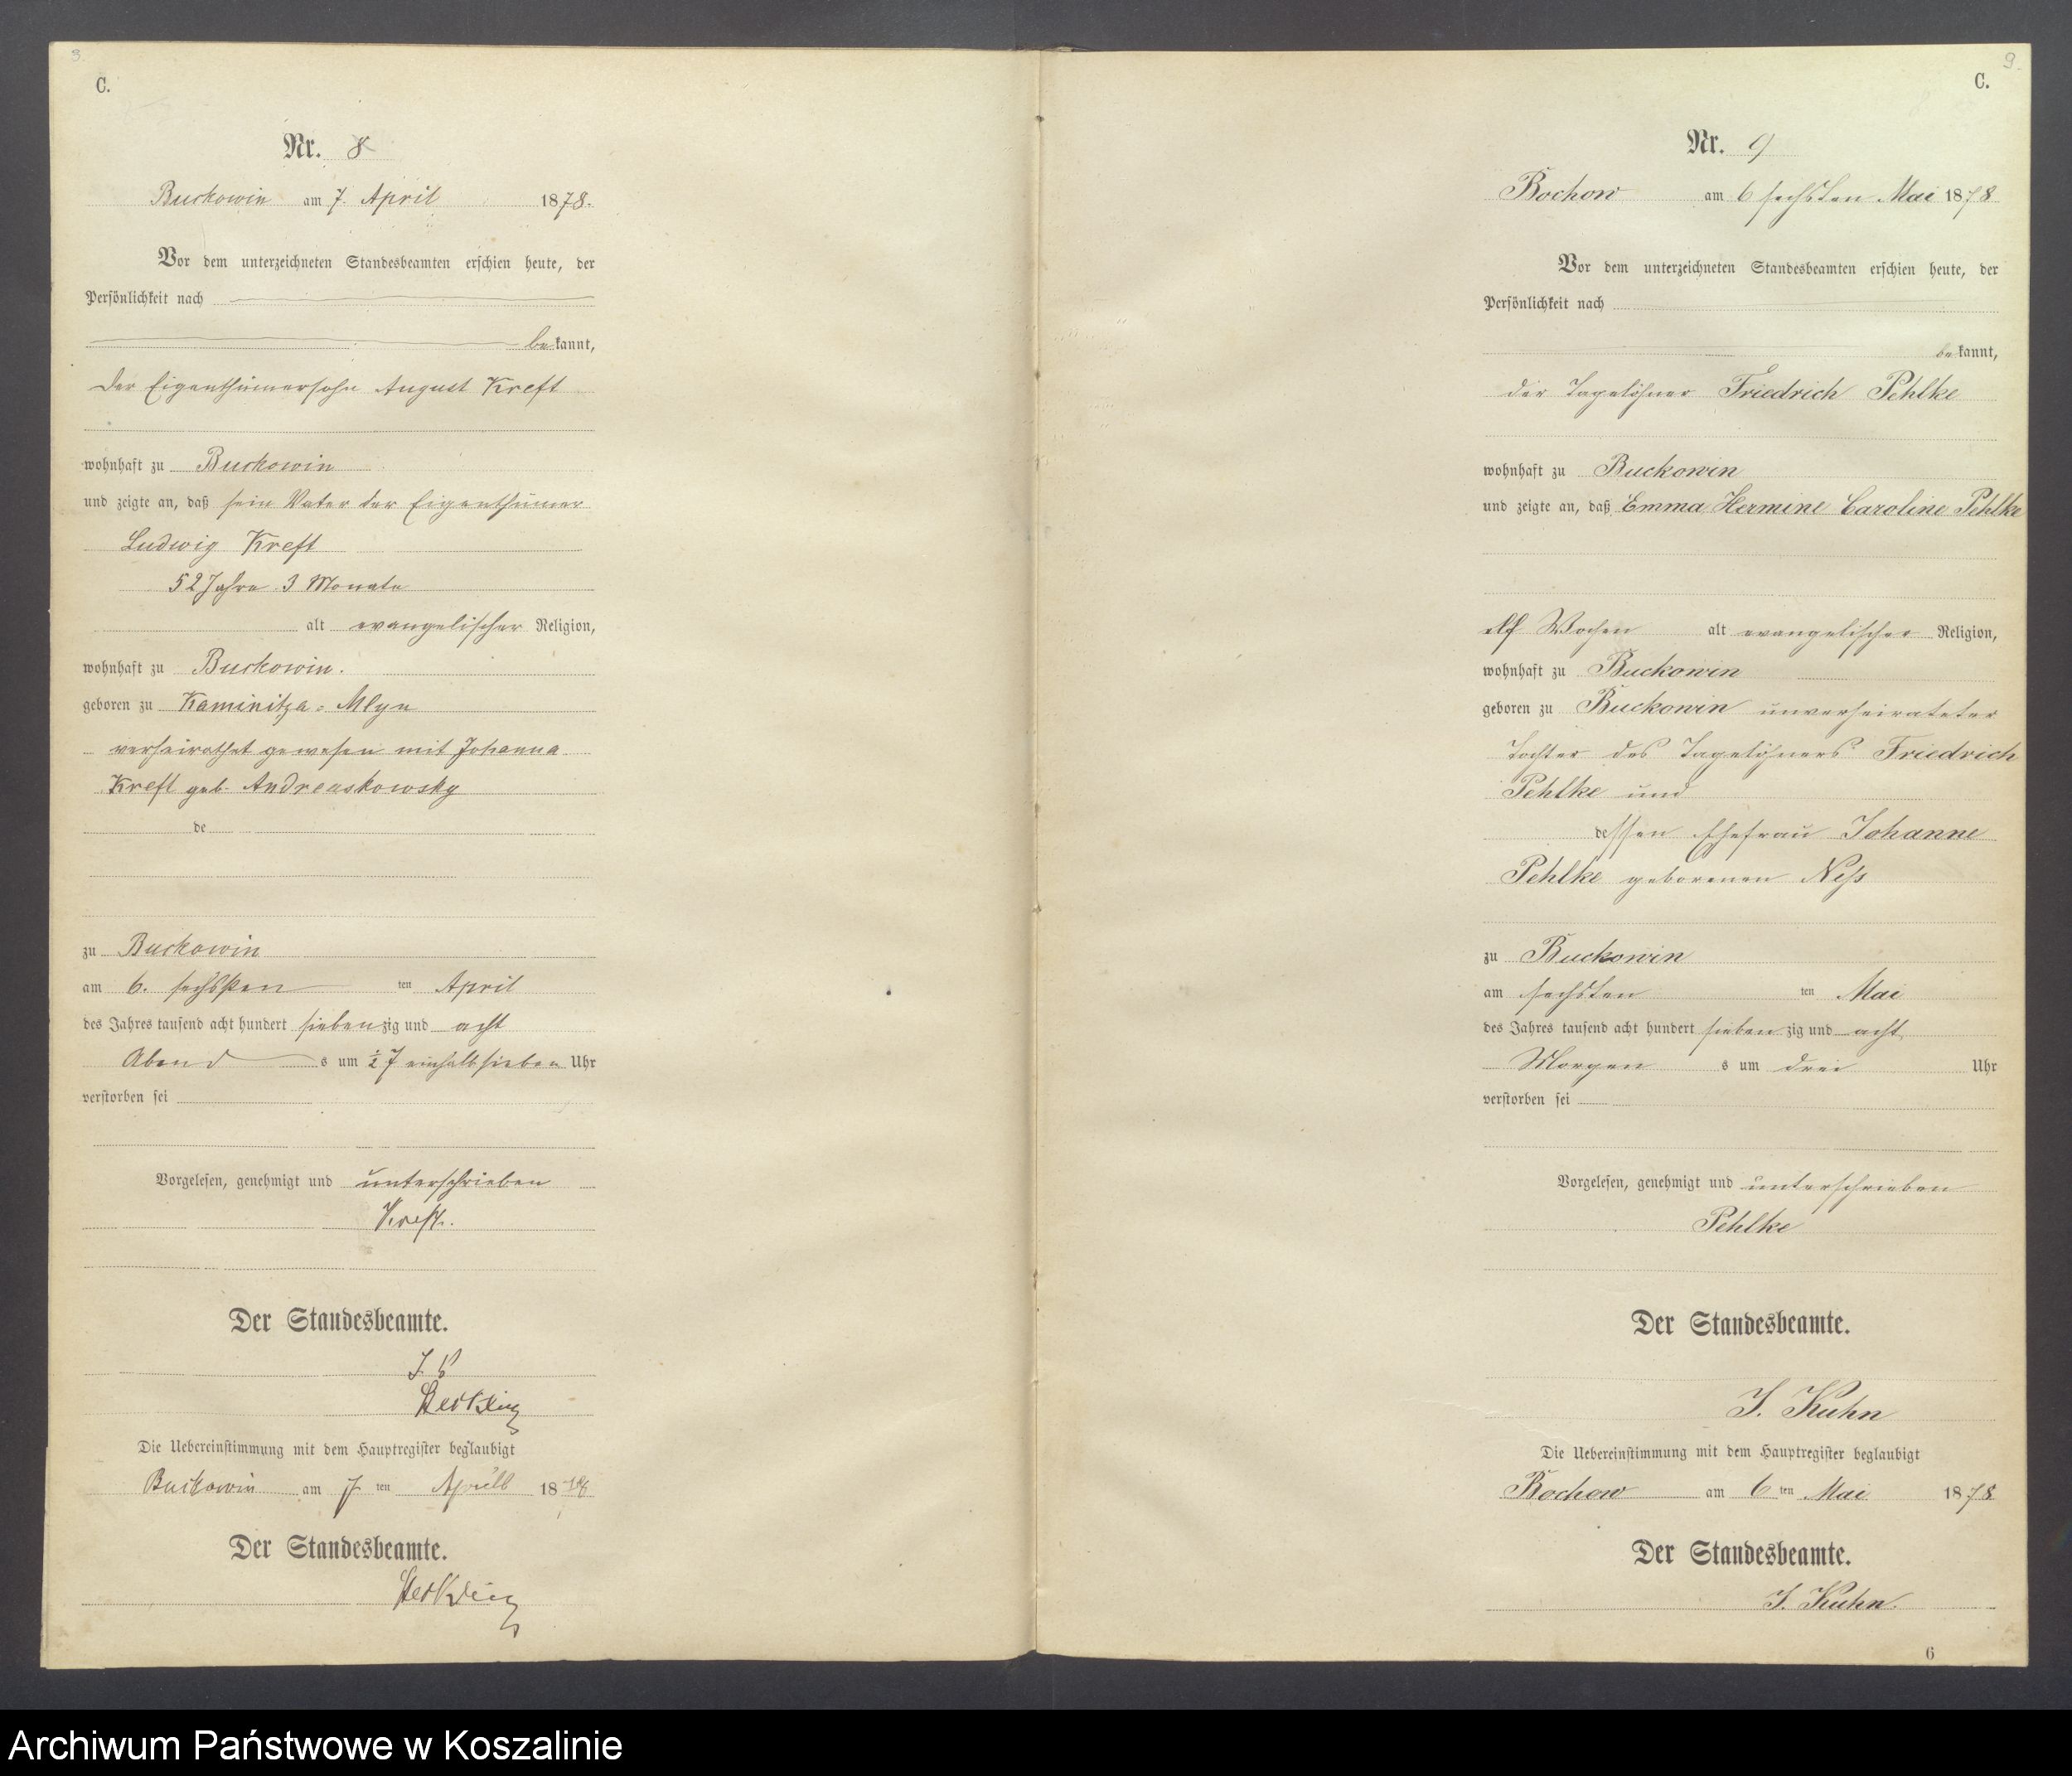 3.
C.
Nr. 8
Buckowin am 7. April 1878.
Vor dem unterzeichneten Standesbeamten erschien heute, der
Persönlichkeit nach
bekannt,
der Eigenthümersohn August Kreft
wohnhaft zu Buckowin
und zeigte an, daß sein Vater der Eigenthümer
Ludwig Kreft
52 Jahre 3 Monate
alt evangelischer Religion,
wohnhaft zu Buckowin.
geboren zu Kaminitza-Mlyn
verheirathet gewesen mit Johanna
Kreft geb. Andreaskowsky
de
zu Buckowin
am 6. sechsten ten April
des Jahres tausend acht hundert siebenzig und acht
Abend s um ½7 einhalb sieben Uhr
verstorben sei
Vorgelesen, genehmigt und unterschrieben
Kreft.
Der Standesbeamte.
J. V
Die Uebereinstimmung mit dem Hauptregister beglaubigt
Buckowin am 7 ten April 1878
Der Standesbeamte.
9.
C.
Nr. 9
Bochow am 6 sechsten Mai 1878
Vor dem unterzeichneten Standesbeamten erschien heute, der
Persönlichkeit nach
bekannt,
der Tagelöhner Friedrich Pehlke
wohnhaft zu Buckowin
und zeigte an, daß Emma Hermine Caroline Pehlke
elf Wochen alt evangelischer Religion,
wohnhaft zu Buckowin
geboren zu Buckowin unverheirateter
Tochter des Tagelöhners Friedrich
Pehlke und
dessen Ehefrau Johanne
Pehlke geborenen Neß
zu Buckowin
am sechsten ten Mai
des Jahres tausend acht hundert siebenzig und acht
Morgen s um drei Uhr
verstorben sei
Vorgelesen, genehmigt und unterschrieben
Pehlke
Der Standesbeamte.
J. Kuhn
Die Uebereinstimmung mit dem Hauptregister beglaubigt
Bochow am 6 ten Mai 1878
Der Standesbeamte.
J. Kuhn.
6
Archiwum Państwowe w Koszalinie